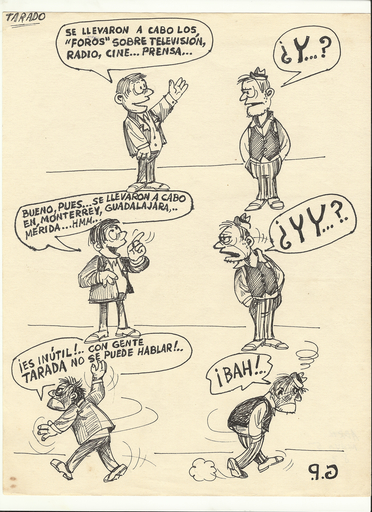 TARADO
SE LLEVARON A CABO LOS
"FOROS" SOBRE TELEVISIÓN,
RADIO, CINE... PRENSA...
¿Y...?
BUENO, PUES...SE LLEVARON A CABO
EN, MONTERREY, GUADALAJARA,..
MÉRIDA...HMM...
¿YY...?.
¡ES INÚTIL!.. CON GENTE
TARADA NO SE PUEDE HABLAR!..
¡BAH!..
G.P.